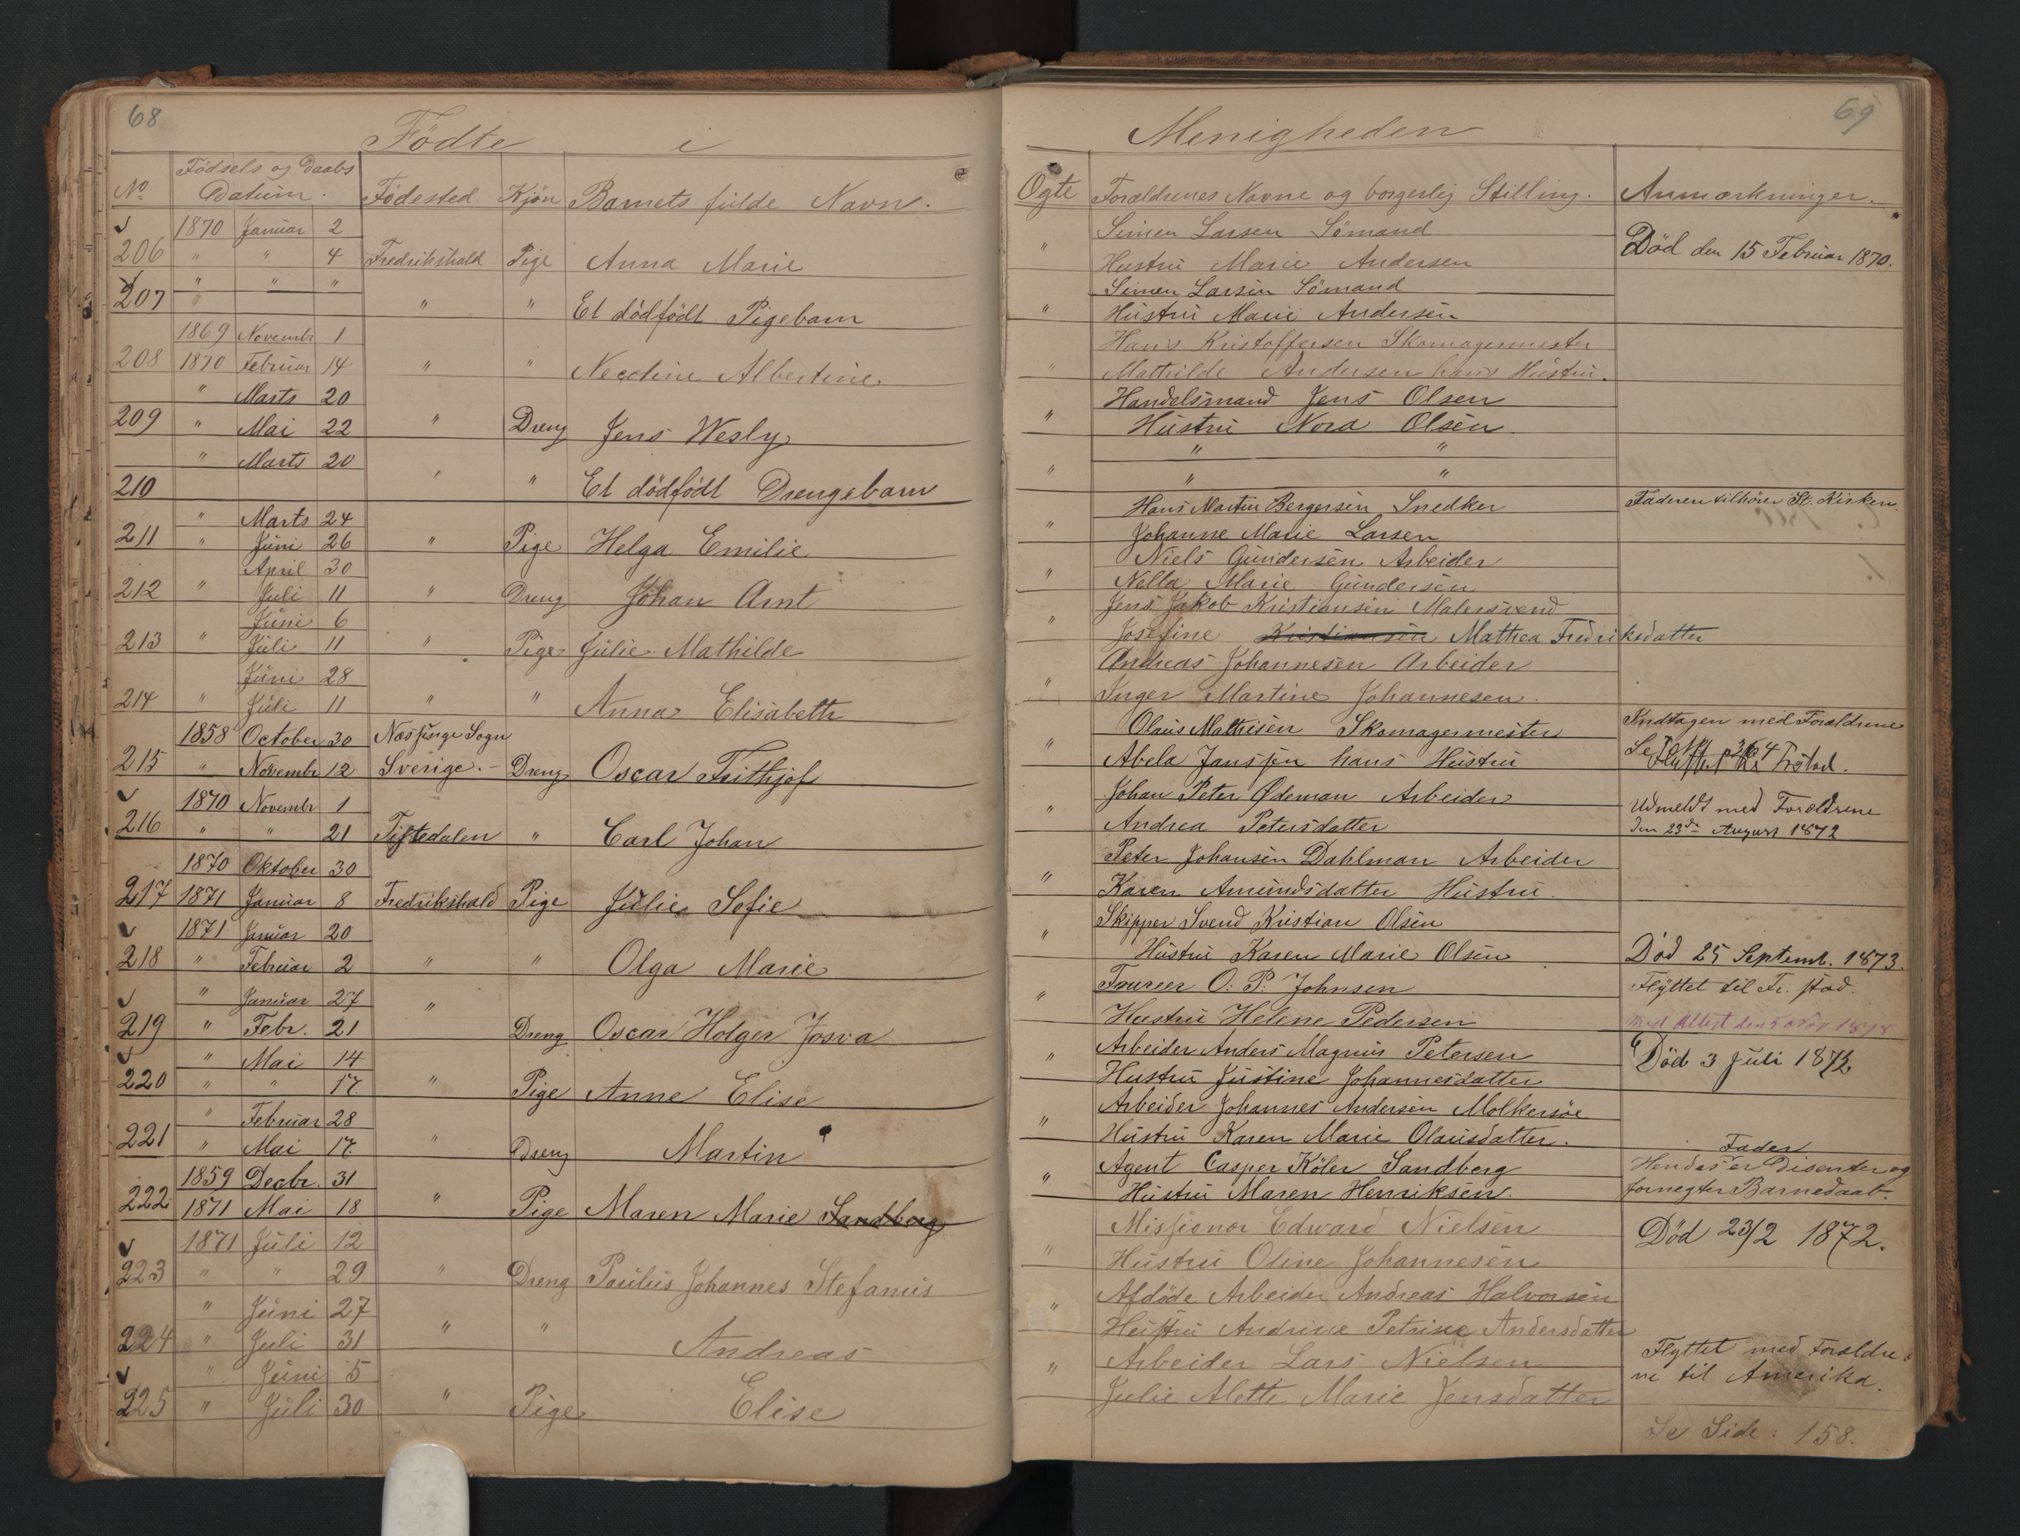 68
Fødte i
No Fødsels og Daabs Datum. Fødested Kjøn Barnets fulde Navn.
1870 Januar 2
206 " " 4 Fredrikshald Pige Anna Marie
" " "
207 " " " Et dödfödt Pigebarn
1869 Novembr 1
208 1870 Februar 14 " " Necoline Albertine.
" Marts 20
209 " Mai 22 " Dreng Jens Wesly
" Marts 20
210 " " Et dödfödt Drengebarn
" Marts 24
211 " Juni 26 " Pige Helga Emilie
April 30
212 " Juli 11 " Dreng Johan Arnt
Juni 6
213 " Juli 11 " Pige Julie Mathilde
Juni 28
214 " Juli 11 " " Anna Elisabeth
1858 October 30 Næssinge Sogn
215 " Novembr 12 Sverige.- Dreng Oscar Frithjof
1870 Novembr 1
216 " " 21 Tistedalen " Carl Johan
1870 Oktober 30
217 1871 Januar 8 Fredrikshald Pige Julie Sofie
1871 Januar 20
218 " Februar 2 " " Olga Marie
" Januar 27 "
219 " Febr. 21 Dreng Oscar Holger Josva
" Mai 14
220 " " 17 " Pige Anne Elise
" Februar 28
221 " Mai 17. " Dreng Martin
1859 Decbr. 31
222 1871 Mai 18 " Pige Maren Marie Sandberg
1871 Juli 12
223 " " 29 " Dreng Paulus Johannes Stefanus
" Juni 27
224 " Juli 31 " " Andreas
" Juni 5
225 " Juli 30 " Pige Elise
69
Menigheden
Ogte Forældrenes Navne og borgerlig Stilling. Anmærkninger.
Simen Larsen Sømand
" Hustru Marie Andersen Død den 15 Februar 1870.
Simen Larsen Sömand
" Hustru Marie Andersen
Hans Kristoffersen Skomagermester
" Mathilde Andersen hans Hustru.
Handelsmand Jens Olsen
" Hustru Nora Olsen.
" "
" " "
Hans Martin Bergersen Snedker Faderen tilhörer St. Kirken
" Johanne Marie Larsen
Niels Gundersen Arbeider
" Nella Marie Gundersen
Jens Jakob Kristiansen Malersvend
" Josefine Kristiansen Mathea Fredriksdatter
Andreas Johannesen Arbeider
" Inger Martine Johannesen.
Olaus Mathisen Skomagermester Indtagen med Forældrene
" Abela Janssen hans Hustru Se
Johan Peter Ødeman Arbeider
" Andrea Petersdatter Udmeldt med Forældrene
den 23de August 1872
Peter Johansen Dahlman Arbeider
" Karen Amundsdatter Hustru.
Skipper Svend Kristian Olsen
" Hustru Karen Marie Olsen Død 25 Septemb. 1873.
Foureer O. P. Johnsen Flÿttet til Fr. stad.
" Hustru Helene Pedersen Med Attest den
Arbeider Anders Magnus Petersen
" Hustru Justine Johannesdatter Død 3 Juli 1872
Arbeider Johannes Andersen Molkersöe
" Hustru Karen Marie Olausdatter.
Agent Casper Köler Sandberg Hendes Fader er Disenter og
" Hustru Maren Henriksen. fornegter Barnedaab.
Missionor Edward Nielsen
" Hustru Oline Johannesen Död 23/2 1872.
Afdöde Arbeider Andreas Halvorsen
" Hustru Andrine Petrine Andersdatter
" Arbeider Lars Nielsen Flyttet med Forældre
Julie Alette Marie Jensdatter ne til Amerika.
Se Side: 158.